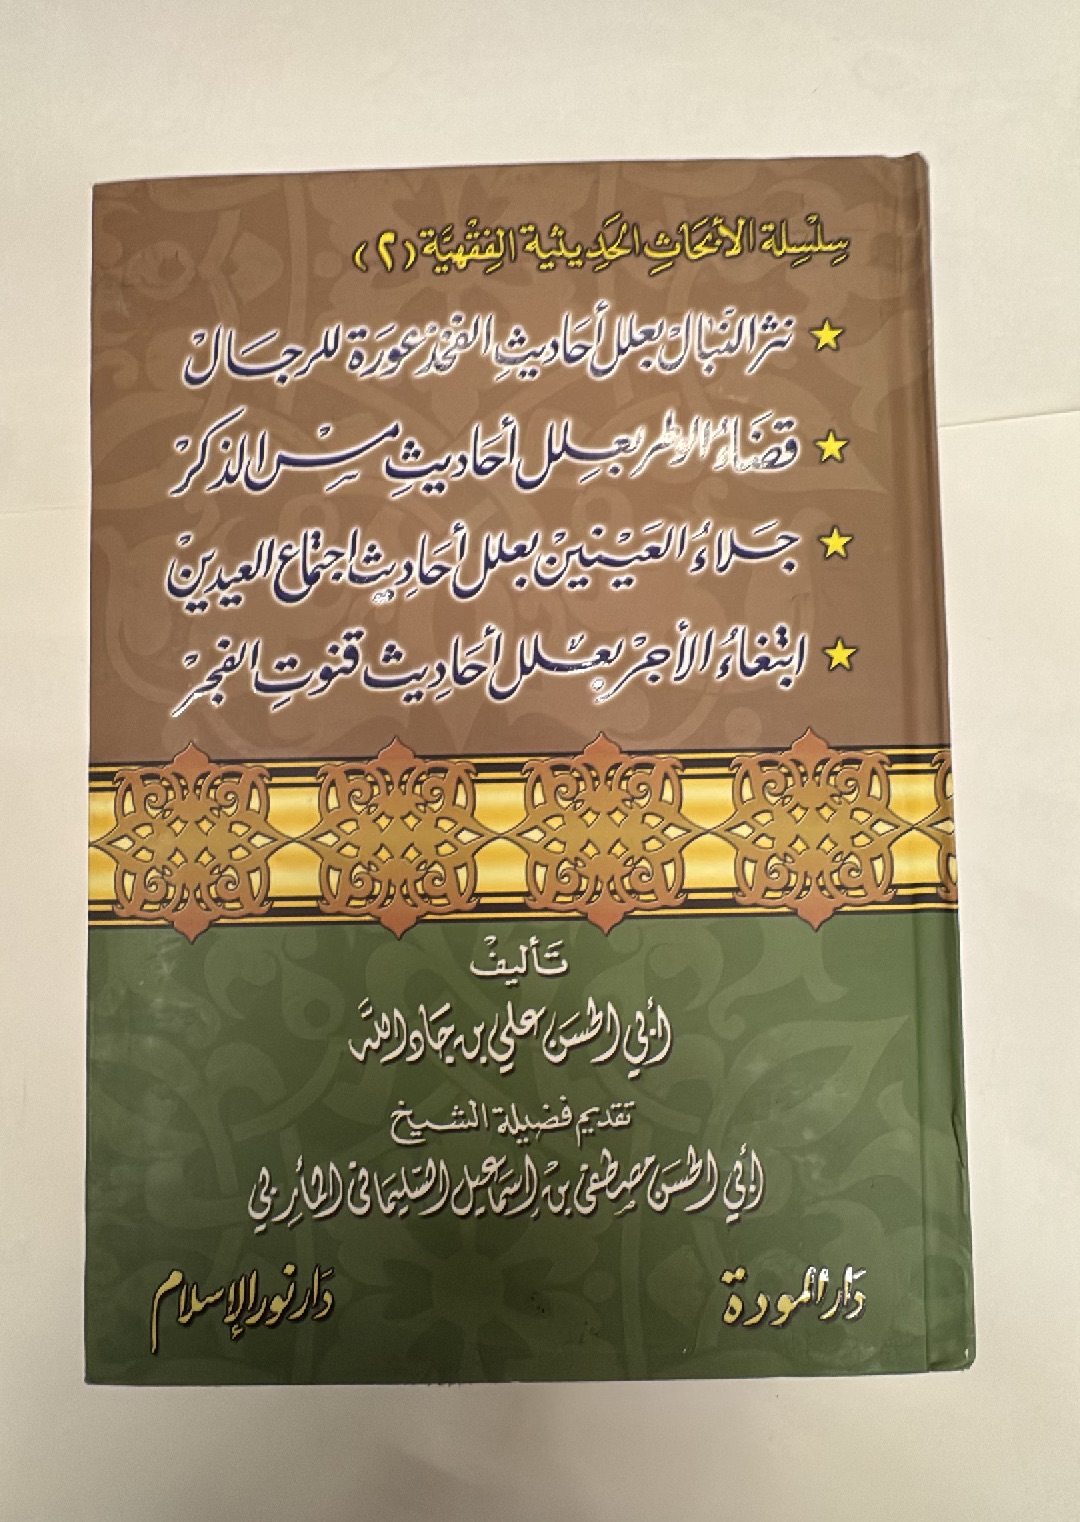 سِلْسِلة الأبحَاثِ الحَدِيثية الفِقْهيَّة (٢)
نثر النِّبَال بعلل أحَاديثِ الفَخْذ عورَة للرجَال
قضَاءُ الوطر بعِلل أحَاديثِ مسِ الذكر
جَلاءُ العَينين بعلل أحَادِيث اجتماع العيدين
ابتغَاءُ الأجر بعلل أحَادِيث قنوتِ الفجر
تَأليف
أبي الحسَن علي بن جاد الله
تقديم فضيلة الشيخ
أبي الحسَن مصطفى بن إسماعيل السّليماني المأربي
دَار المودة
دَار نور الإسلام